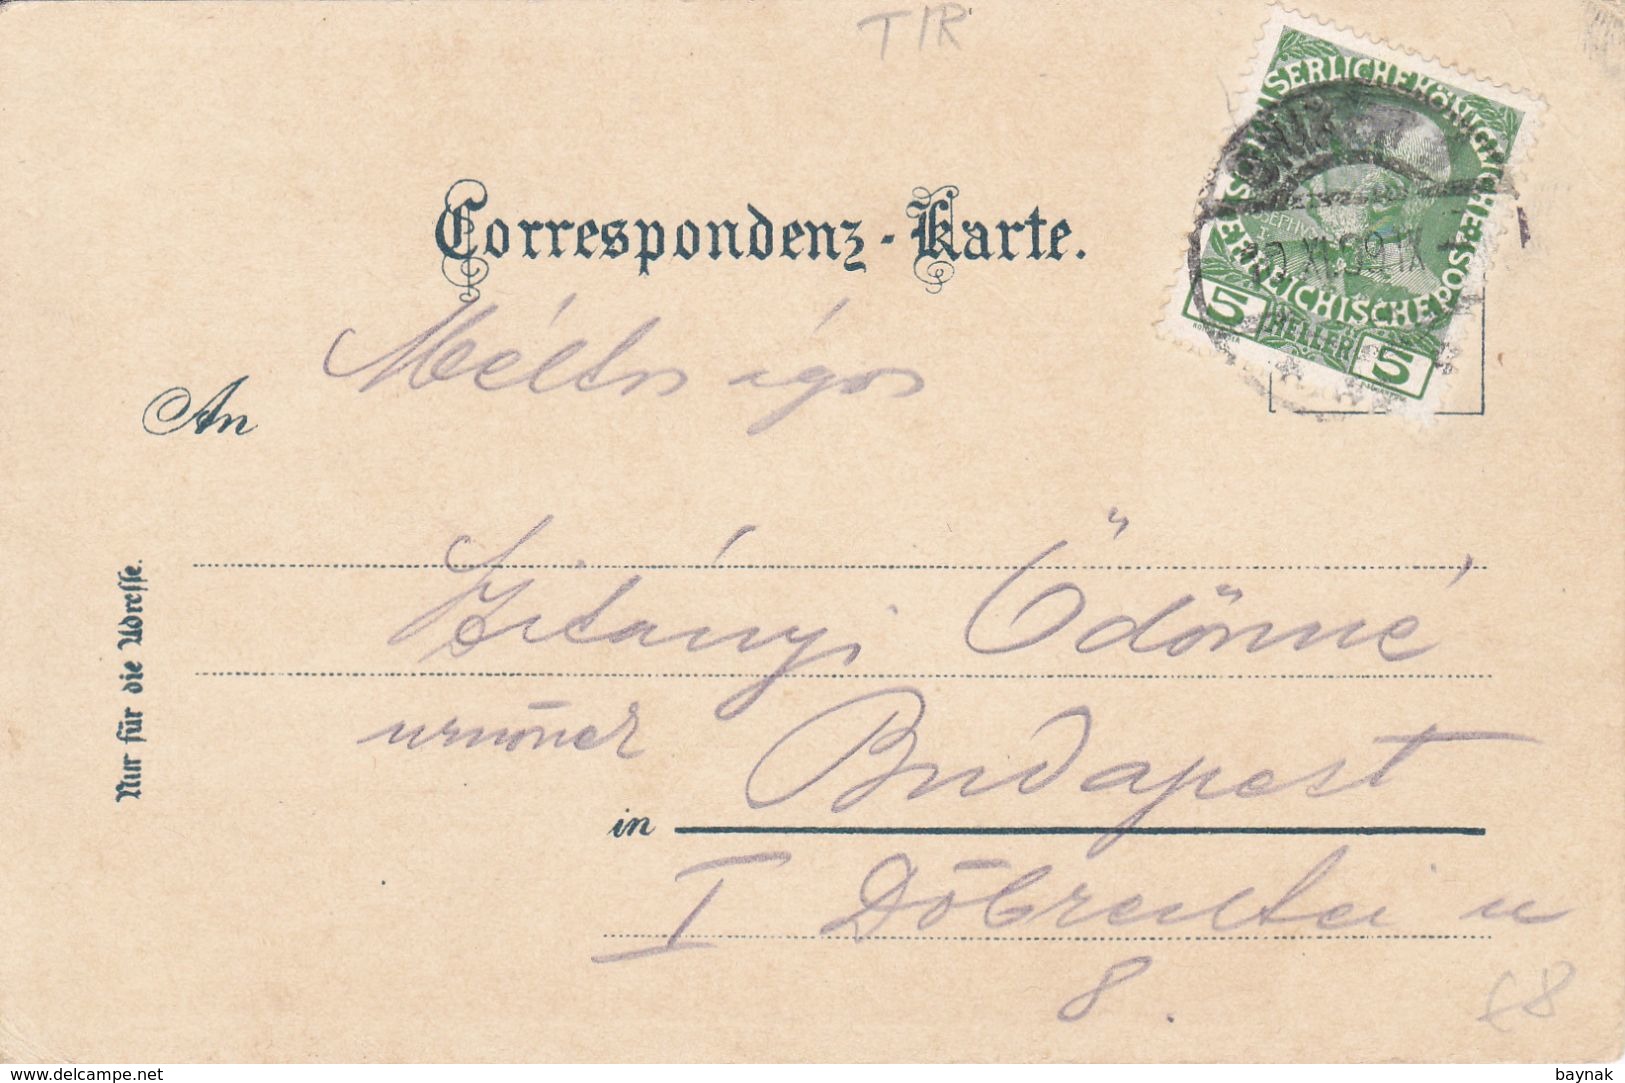 TIR
Correspondenz-Karte.
KAISERLICHE KÖNIGLICHE ÖSTERREICHISCHE POST
5 HELLER 5
Méltóságos
An
Szitányi Ödönné
Nur für die Adresse.
urnőnek
Budapest
in
I Döbrentei u
8.
€8
www.delcampe.net
baynak